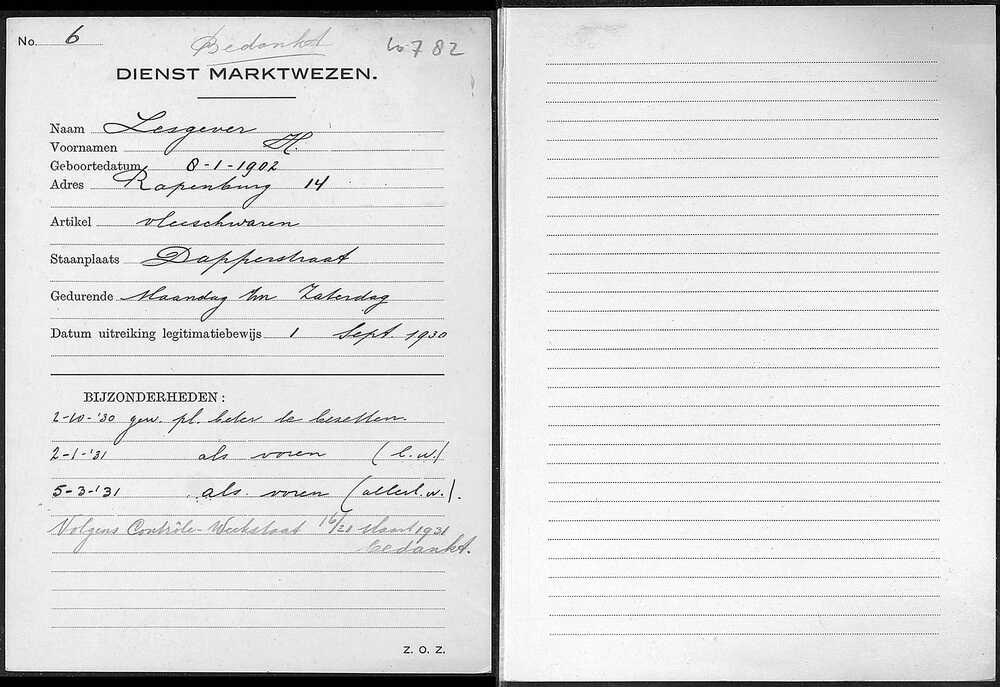 No. 6
Bedankt
782
DIENST MARKTWEZEN.
Naam Lesgever
Voornamen H.
Geboortedatum 8-1-1902
Adres Rapenburg 14
Artikel vleeschwaren
Staanplaats Dapperstraat
Gedurende Maandag t/m Zaterdag
Datum uitreiking legitimatiebewijs 1 Sept. 1930
BIJZONDERHEDEN:
2-10-'30 gew. pl. beter te bezetten.
2-1-'31 als voren (l.w.)
5-3-'31 als voren (allerl.w.).
Volgens Contrôle-Weekstaat 16/21 Maart 1931
bedankt.
Z. O. Z.